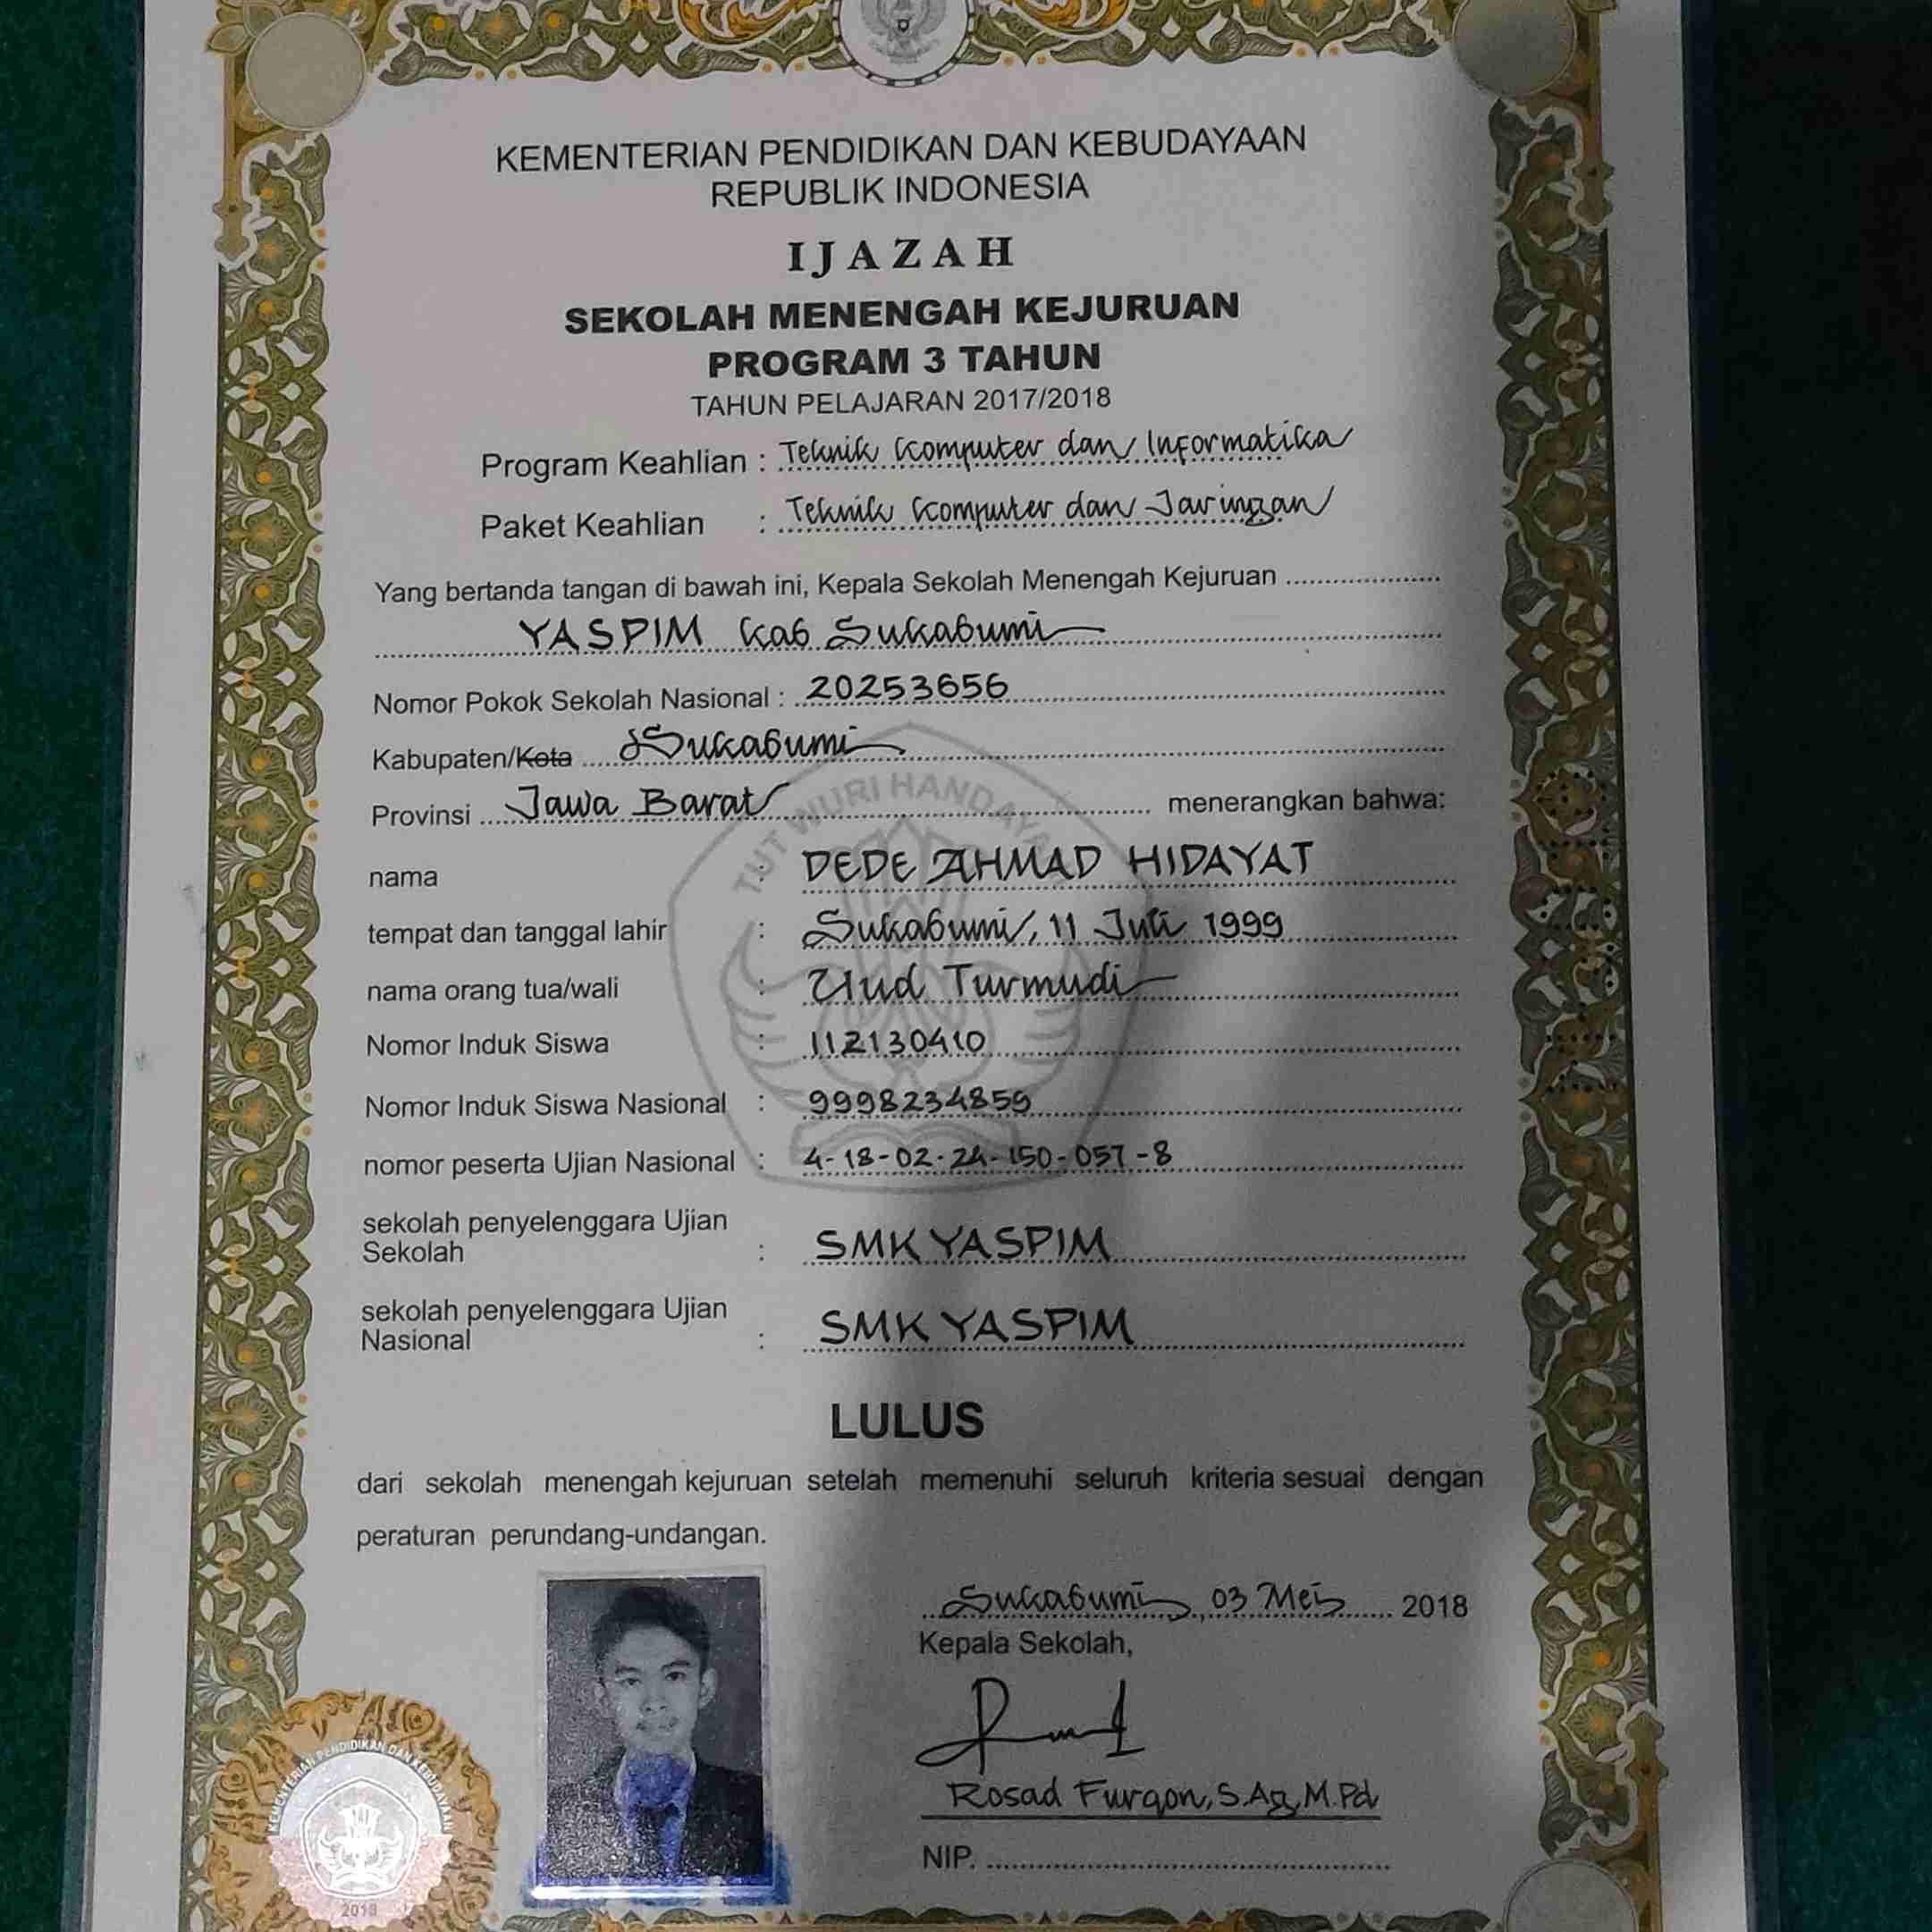 KEMENTERIAN PENDIDIKAN DAN KEBUDAYAAN
REPUBLIK INDONESIA
IJAZAH
SEKOLAH MENENGAH KEJURUAN
PROGRAM 3 TAHUN
TAHUN PELAJARAN 2017/2018
Program Keahlian : Teknik Komputer dan Informatika
Paket Keahlian : Teknik Komputer dan Jaringan
Yang bertanda tangan di bawah ini, Kepala Sekolah Menengah Kejuruan
YASPIM Kab Sukabumi
Nomor Pokok Sekolah Nasional : 20253656
Kabupaten/Kota Sukabumi
Provinsi Jawa Barat menerangkan bahwa:
TUT WURI HANDAYANI
nama : DEDE AHMAD HIDAYAT
tempat dan tanggal lahir : Sukabumi, 11 Juli 1999
nama orang tua/wali : Uud Turmudi
Nomor Induk Siswa : 112130410
Nomor Induk Siswa Nasional : 9998234859
nomor peserta Ujian Nasional : 4-18-02-24-150-057-8
sekolah penyelenggara Ujian
Sekolah : SMK YASPIM
sekolah penyelenggara Ujian
Nasional : SMK YASPIM
LULUS
dari sekolah menengah kejuruan setelah memenuhi seluruh kriteria sesuai dengan
peraturan perundang-undangan.
Sukabumi, 03 Mei 2018
Kepala Sekolah,
Rosad Furqon, S.Ag, M.Pd
NIP.
KEMENTERIAN PENDIDIKAN DAN KEBUDAYAAN
2018